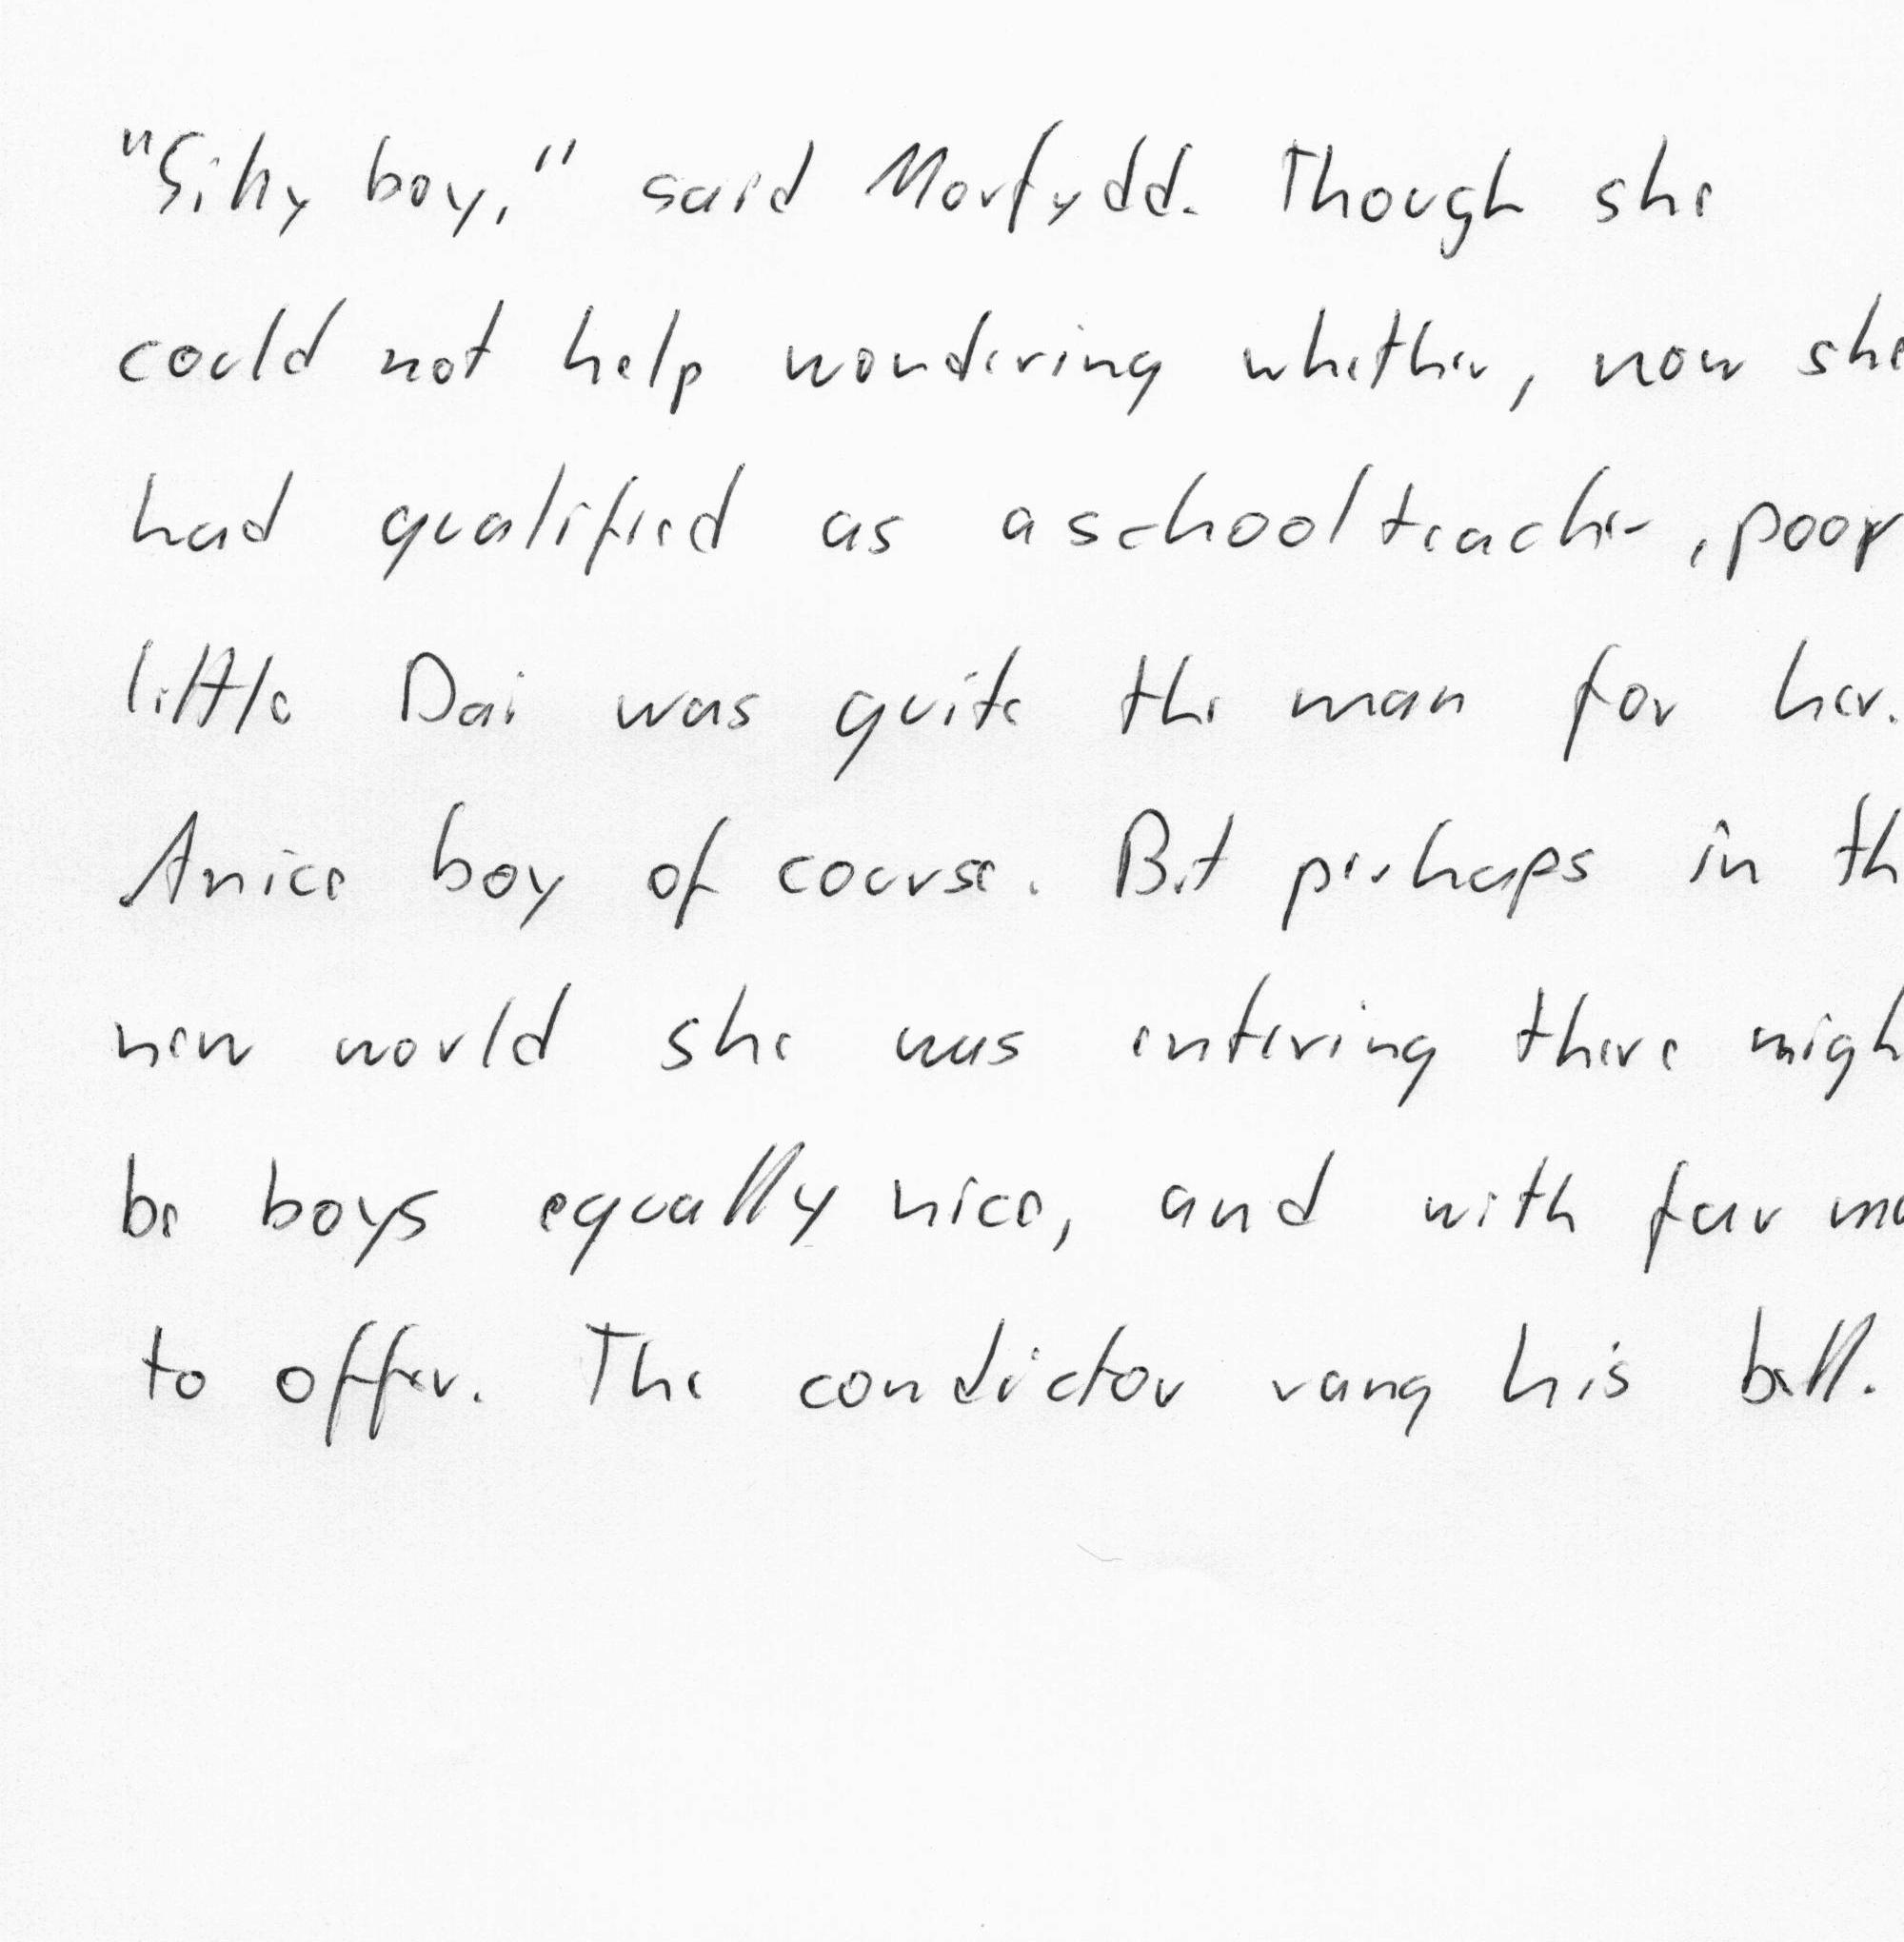 "Silly boy," said Morfydd. Though she
could not help wondering whether, now she
had qualified as a schoolteacher, poor
little Dai was quite the man for her.
A nice boy of course. But perhaps in th
new world she was entering there migh
be boys equally nice, and with far mo
to offer. The conductor rang his bell.